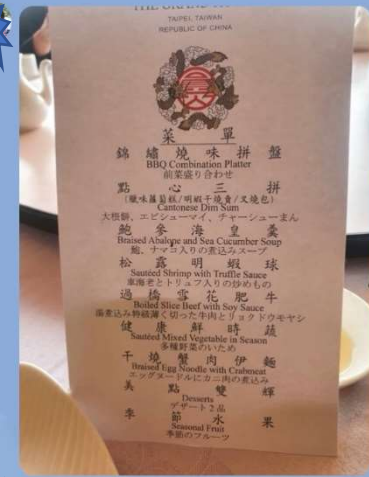 THE GRAND
TAIPEI, TAIWAN
REPUBLIC OF CHINA
菜 單
錦 繡 燒 味 拼 盤
BBQ Combination Platter
前菜盛り合わせ
點 心 三 拼
(臘味蘿蔔糕/明蝦干燒賣/叉燒包)
Cantonese Dim Sum
大根餅、エビシューマイ、チャーシューまん
鮑 參 海 皇 羹
Braised Abalone and Sea Cucumber Soup
鮑、ナマコ入りの煮込みスープ
松 露 明 蝦 球
Sautéed Shrimp with Truffle Sauce
車海老とトリュフ入りの炒めもの
過 橋 雪 花 肥 牛
Boiled Slice Beef with Soy Sauce
湯煮込み特級薄く切った牛肉とリョクドウモヤシ
健 康 鮮 時 蔬
Sautéed Mixed Vegetable in Season
多種野菜のいため
干 燒 蟹 肉 伊 麵
Braised Egg Noodle with Crabmeat
エッグヌードルにカニ肉の煮込み
美 點 雙 輝
Desserts
デザート2品
季 節 水 果
Seasonal Fruit
季節のフルーツ